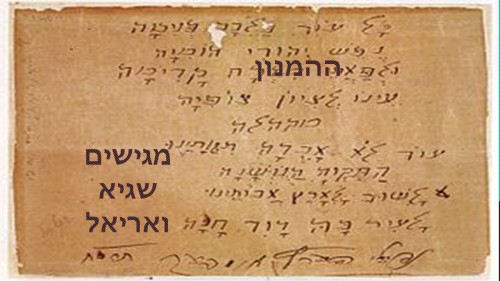 כל עוד בלבב פנימה
נפש יהודי הומיה
ההמנון
ולפאתי מזרח קדימה
עינו לציון צופיה
מקהלה
עוד לא אבדה תקותנו
התקוה הנושנה
לשוב לארץ אבותינו
לעיר בה דוד חנה
נפתלי הערץ אימבער
מגישים
שגיא
ואריאל